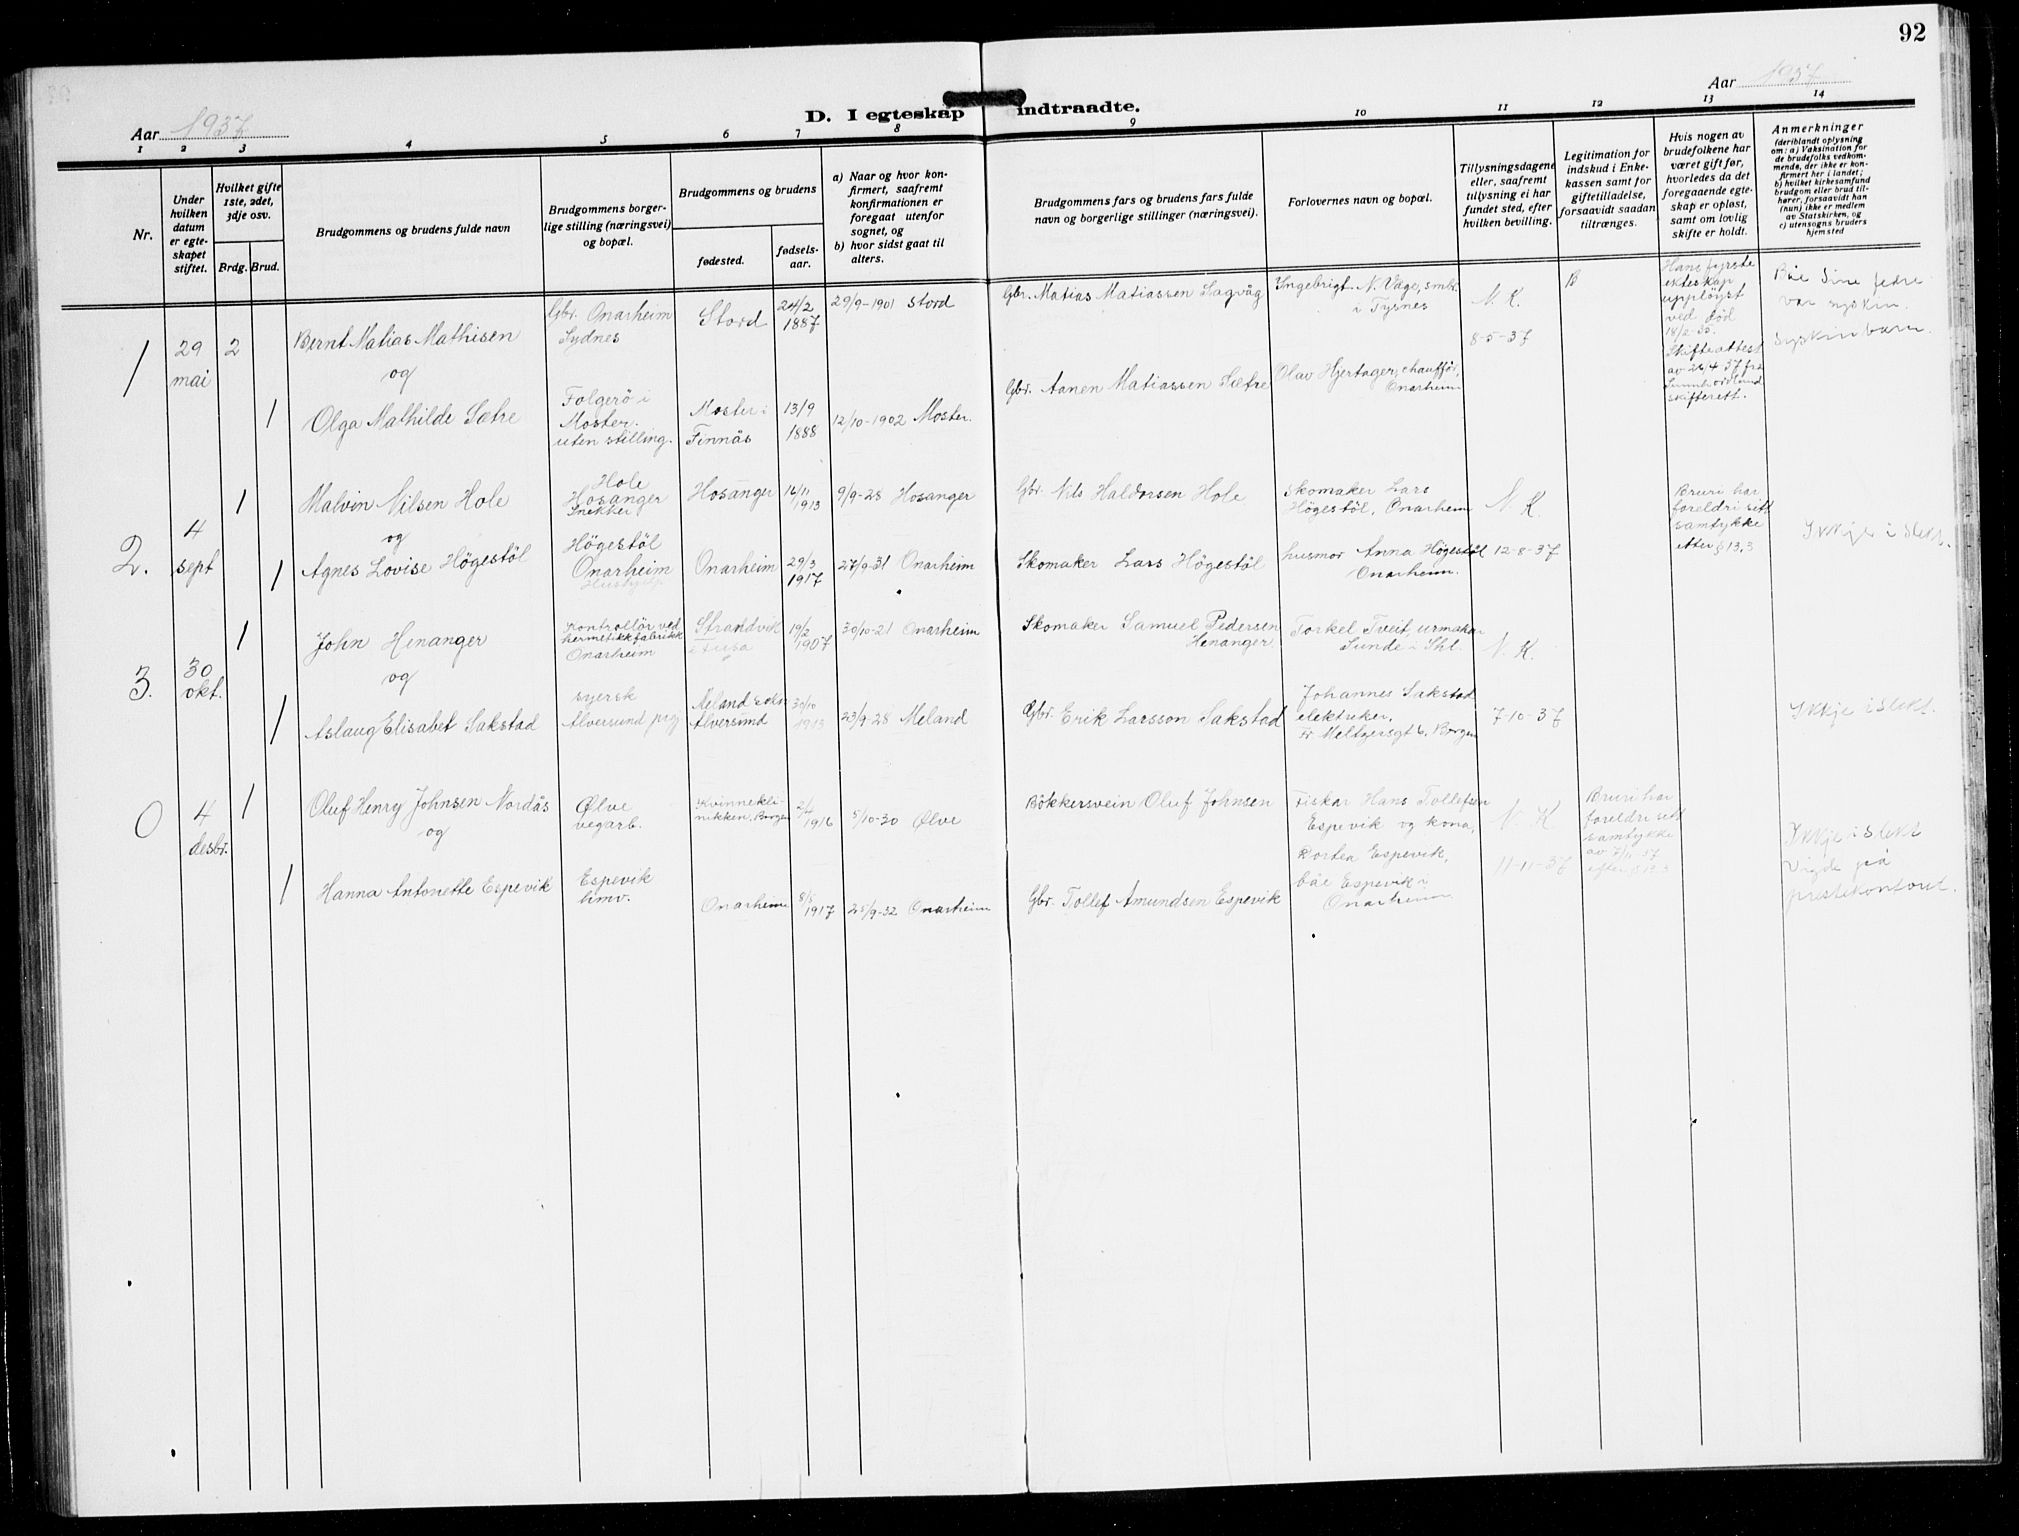 92
Aar 1937
D. I egteskap indtraadte.
Aar 1937
1 2 3 4 5 6 7 8 9 10 11 12 13 14
Nr.
Under hvilken datum er egteskapet stiftet.
Hvilket gifte 1ste, 2det, 3dje osv.
Brdg. Brud.
Brudgommens og brudens fulde navn
Brudgommens borgerlige stilling (næringsvei) og bopæl.
Brudgommens og brudens
fødested.
fødselsaar.
a) Naar og hvor konfirmert, saafremt konfirmationen er foregaat utenfor sognet, og
b) hvor sidst gaat til alters.
Brudgommens fars og brudens fars fulde navn og borgerlige stillinger (næringsvei).
Forlovernes navn og bopæl.
Tillysningsdagene eller, saafremt tillysning ei har fundet sted, efter hvilken bevilling.
Legitimation for indskud i Enkekassen samt for giftetilladelse, forsaavidt saadan tiltrænges.
Hvis nogen av brudefolkene har været gift før, hvorledes da det foregaaende egteskap er opløst, samt om lovlig skifte er holdt.
Anmerkninger (deriblandt oplysning om: a) Vaksination for de brudefolks vedkommende, der ikke er konfirmert her i landet; b) hvilket kirkesamfund brudgom eller brud tilhører, forsaavidt han (hun) ikke er medlem av Statskirken, og c) utensogns bruders hjemsted
1
29 mai
2
Bernt Matias Mathisen
og
Gbr. Onarheim
Sydnes
Stord
24/2 1887
29/9-1901 Stord
Gbr. Matias Matiassen Sagvåg
Ingebrigt N. Våge, smbr.
i Tysnes
N. K.
8-5-37
B
Hans fyrste
ekteskap
uppløyst
ved død
18/2 30.
Skifteattest
av 26/4 37 frå
Sunnhordland
skifterett.
Båe sine fedre
var syskin.
Syskinbarn.
1
Olga Mathilde Sætre
Folgerö i
Moster.
uten stilling.
Moster i
Finnås
13/9 1888
12/10-1902 Moster.
Gbr. Aanen Matiassen Sætre
Olav Hjertager, chaufför,
Onarheim
2.
4 sept
1
Malvin Nilsen Hole
og
Hole
Hosanger
Snekker
Hosanger
16/11 1913
9/9-28 Hosanger
Gbr. Nils Haldorsen Hole
Skomaker Lars
Högestöl, Onarheim
N. K.
Bruri har
foreldri sitt
samtykke
etter § 13,3
Ikkje i slekt.
1
Agnes Lovise Högestöl
Högestöl
Onarheim
Hushjelp
Onarheim
29/3 1917
27/9-31 Onarheim
Skomaker Lars Högestöl
husmor Anna Högestöl
Onarheim.
12-8-37
3.
30 okt.
1
John Henanger
og
Kontrollör ved
hermetikkfabrikk
Onarheim
Strandvik
i Fusa
19/2 1907
30/10-21 Onarheim
Skomaker Samuel Pedersen
Henanger
Torkel Tveit, urmakar
Sunde i Shl.
N. K.
1
Aslaug Elisabet Sakstad
syersk
Alversund prgj
Meland sokn
Alversund
30/10 1913
23/9-28 Meland
Gbr. Erik Larsson Sakstad
Johannes Sakstad
elektriker,
Fr. Meltzersgt 6, Bergen
7-10-37
Ikkje i slekt.
0
4 desbr.
1
Oluf Henry Johnsen Nordås
og
Ølve
vegarb.
Kvinnekli-
nikken, Bergen
2/4 1916
5/10-30 Ølve
Bökkersvein Oluf Johnsen
Fiskar Hans Tollefsen
Espevik og kona,
Dortea Espevik,
båe Espevik i
Onarheim
N. K
11-11-37
Bruri har
foreldri sitt
samtykke
av 7/11-37
etter § 13,3
Ikkje i slekt
Vigde på
prestekontoret.
1
Hanna Antonette Espevik
Espevik
hmv.
Onarheim
8/5 1917
25/9-32 Onarheim
Gbr. Tollef Amundsen Espevik